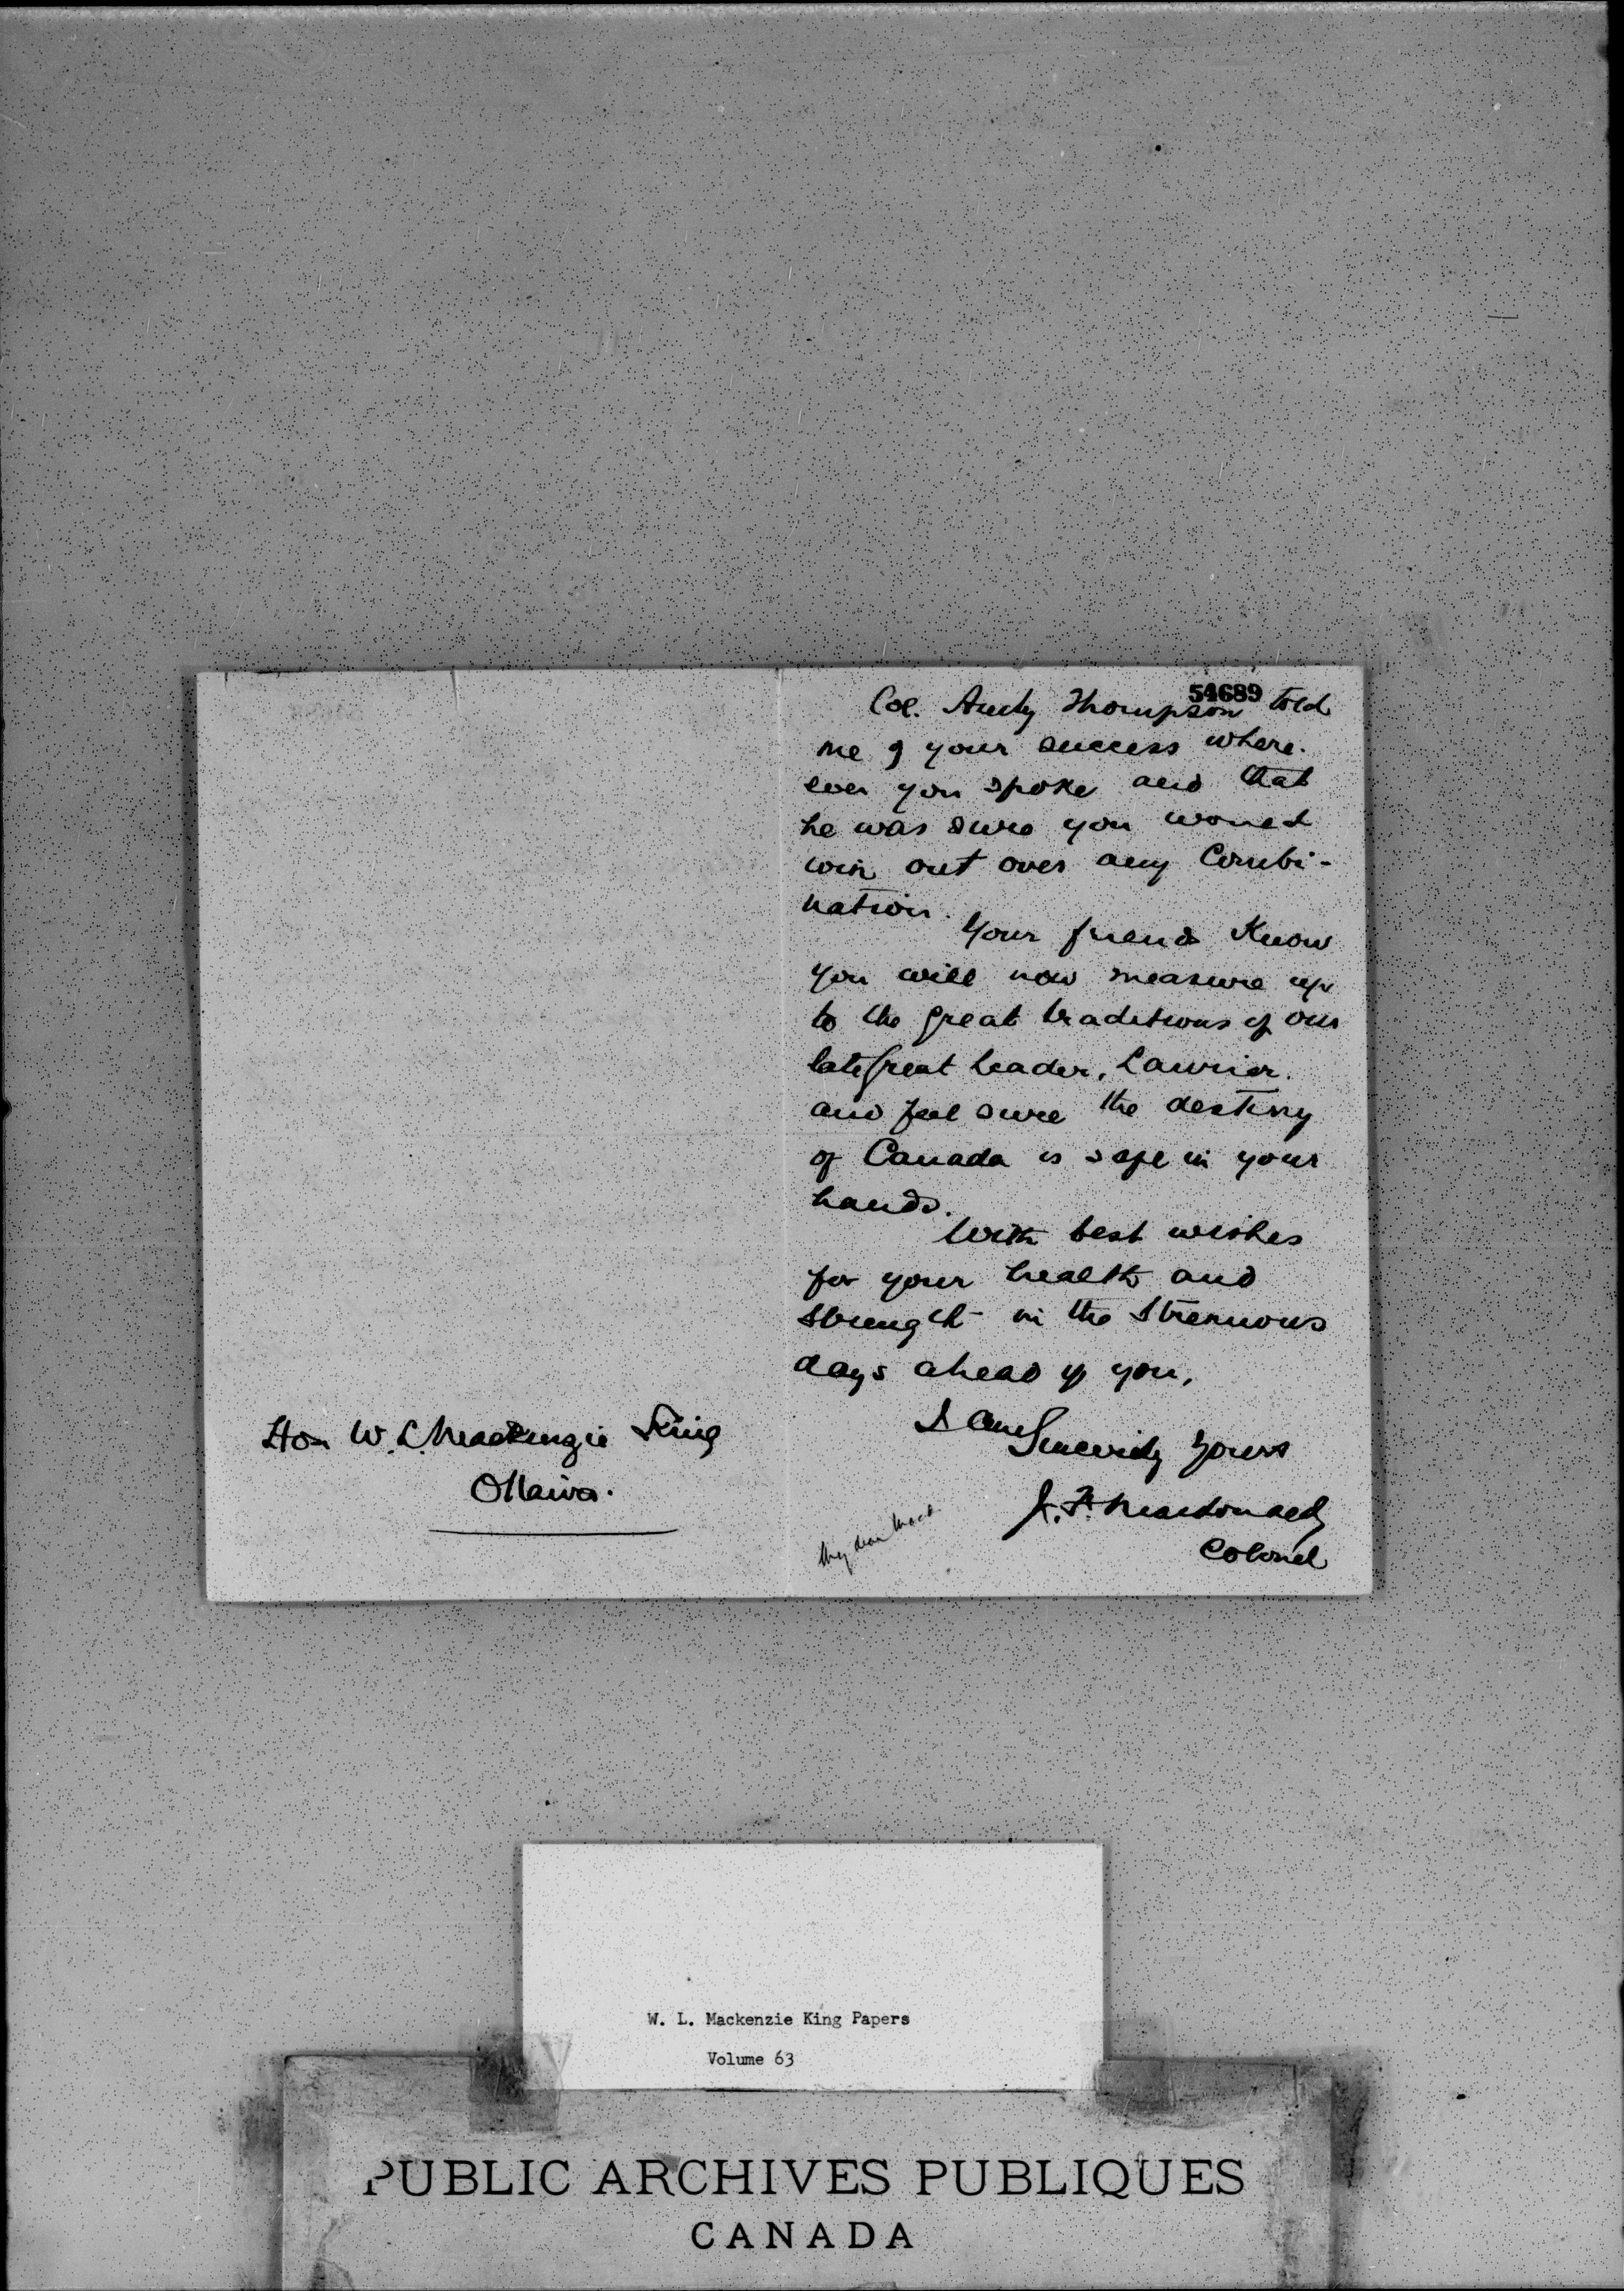 54689
Col. Andy Thompson told
me of your success where-
ever you spoke and that
he was sure you would
win out over any Combi-
nation.
Your friends Know
you will now measure up
to the great traditions of our
late great leader, Laurier.
and feel sure the destiny
of Canada is safe in your
hands.
With best wishes
for your health and
strenght in the strenuous
days ahead of you,
I am
Sincerely Yours
J. F. Macdonald
Colonel
My dear Macd
Hon W. L. Mackenzie King
Ottawa.
W. L. Mackenzie King Papers
Volume 63
PUBLIC ARCHIVES PUBLIQUES
CANADA